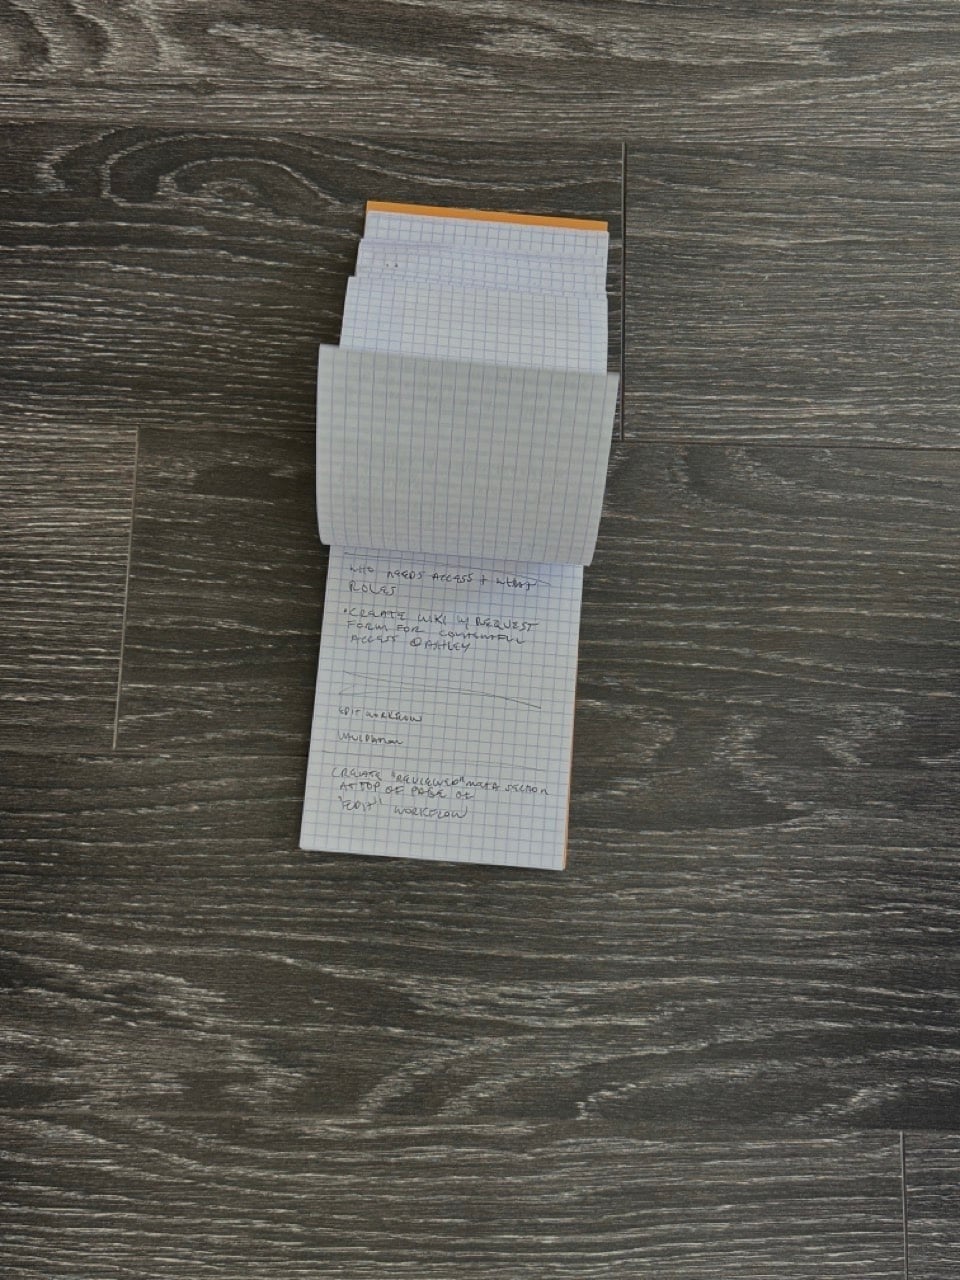 WHO NEEDS ACCESS + WHAT
ROLES
•CREATE WIKI W/ REQUEST
FORM FOR CONTENTFUL
ACCESS @ASHLEY
EDIT WORKFLOW
VALIDATION
CREATE "REVIEWED" META SECTION
AT TOP OF PAGE OF
"EDIT" WORKFLOW